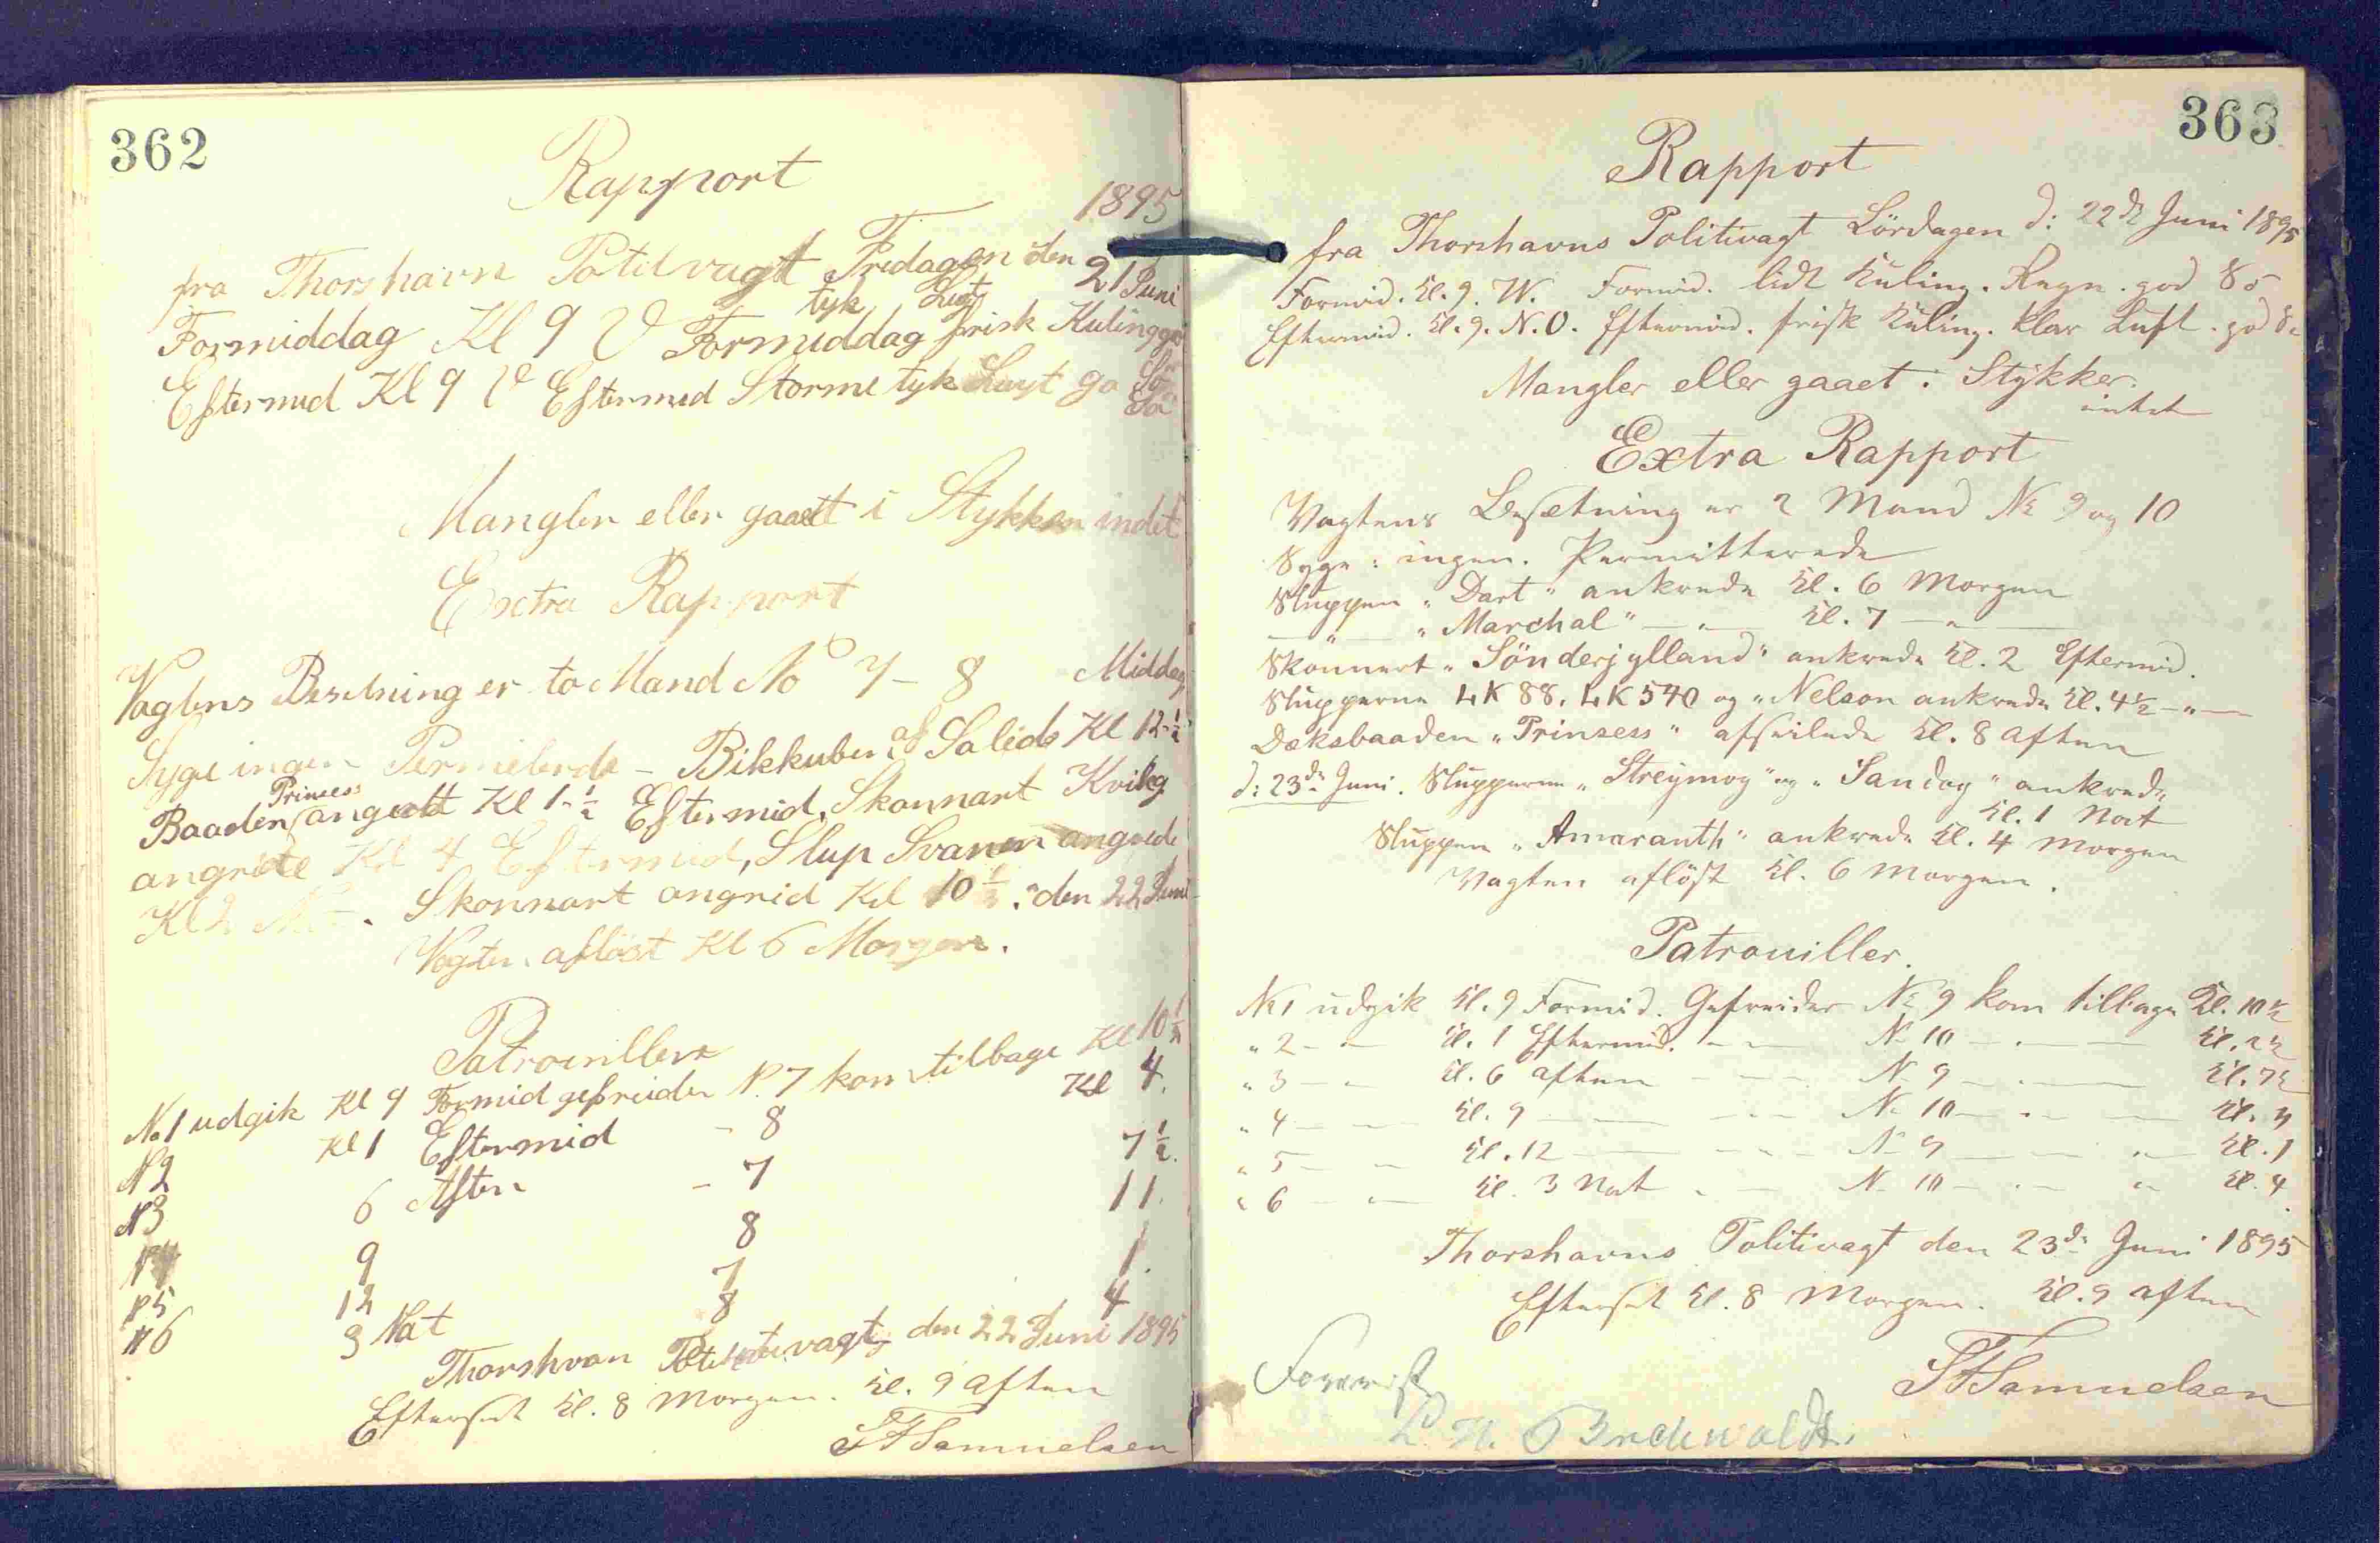 362
Rapport
1895
fra Thorshavn Potitvagt Fredagen den 21 Juni
tyk Luft
Formiddag Kl 9 V Formiddag frisk Kuling go Sö
Eftermid Kl 9 V Eftermed Storme tyk Luyt go Sö
Mangler eller gaaett i Stykker indet
Extra Rapport
Vagtens Besetning er to Mand No 7 - 8 Middag
Syge ingen - Bikkuben af Saleide Kl 12 1/2
Princess
Baaden Kl 1 - 1/2 Eftermid, Skonnart Kvikg
angrede Kl 4 Eftermid, Slup Svanen angrede
Kl 2 Skonnart angrid Kl 10 1/2 . den 22 Juni
Vagten aflöst Kl 6 Morgen.
Patrouillere
No 1 udgik Kl 9 Formid gefreider N. 7 kom tilbage Kl 10 1/2
N2 Kl 1 Eftermid - 8 Kl 4.
N3 6 Aften - 7 7 1/2.
N4 9 8 11.
N5 12 7 1.
N6 3 Nat 8 4
Thorshvan vagt den 22 Juni 1895
Efterset Kl. 8 Morgen. Kl. 9 Aften
Samuelsen
363
Rapport
fra Thorshavns Politivagt Lördagen d: 22de Juni 1895
Formid. Kl. 9. W. Formid. lidt Kuling. Regn. god Sö
Eftermid. Kl. 9. N.O. Eftermid. frisk Kuling. Klar Luft. god Sö
Mangler eller gaaet i Stykker.
intet
Extra Rapport
Vagtens Besetning er 2 Mand No 9 og 10
Syge: ingen. Permitterede
Sluppen "Dart" ankrede Kl. 6 Morgen
— " — "Marchal" — " — Kl. 7 — " —
Skonnert "Sönderjylland" ankrede Kl. 2 Eftermid.
Slupperne LK 88. LK 540 og "Nelson ankrede Kl. 4 1/2 — " —
Dæksbaaden "Prinsess" afseilede Kl. 8 Aften
d: 23de Juni. Slupperne "Streymoy" og "Sandoy" ankrede
Kl. 1 Nat
Sluppen "Amaranth" ankrede Kl. 4 Morgen
Vagten aflöst Kl. 6 Morgen.
Patrouiller.
No 1 udgik Kl. 9 Formid. Gefreider No 9 kom tilbage Kl. 10 1/2
" 2 — " — Kl. 1 Eftermid. — " — No 10 — " — Kl. 2 1/2
" 3 — " — Kl. 6 Aften — " — No 9 — " — Kl. 7 1/2
" 4 — " — Kl. 9 — " — No 10 — " — Kl. 11
" 5 — " — Kl. 12 — " — No 9 — " — Kl. 1
" 6 — " — Kl. 3 Nat — " — No 10 — " — Kl. 4.
Thorshavns Politivagt den 23de Juni 1895
Efterset Kl. 8 Morgen. Kl. 9 Aften
Samuelsen
Forevist